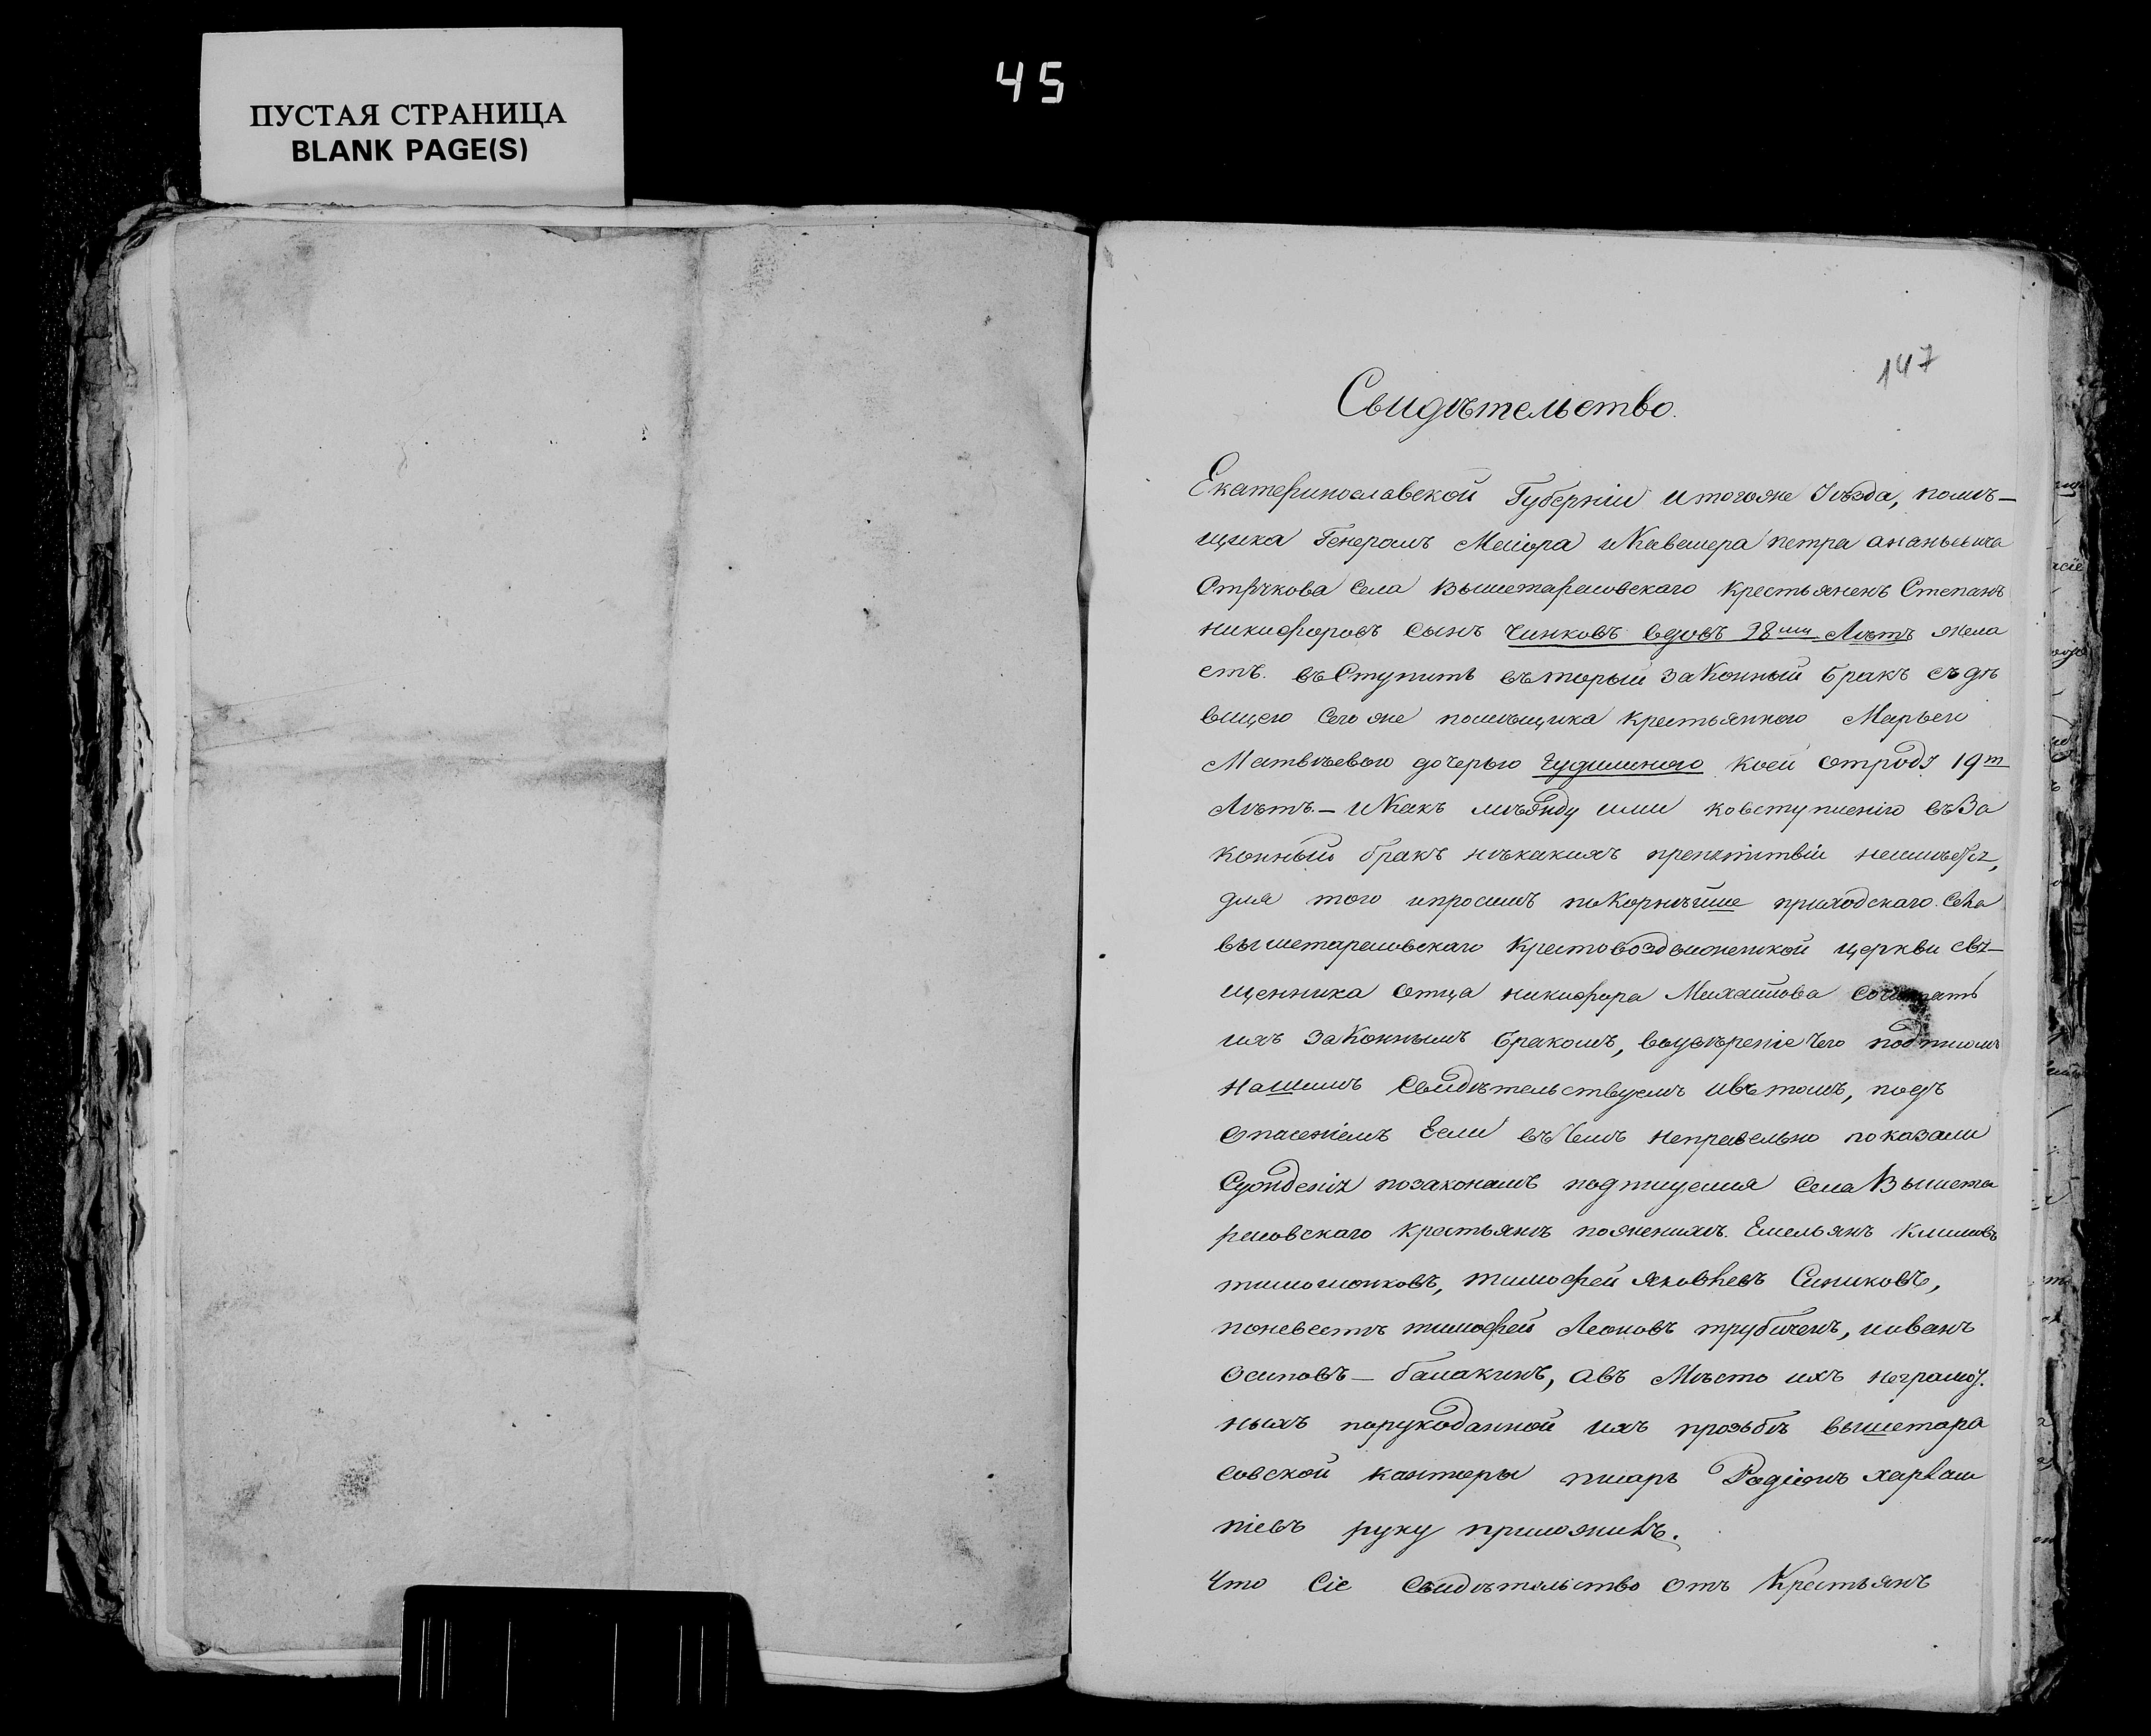 ПУСТАЯ СТРАНИЦА
BLANK PAGE(S)
45
147
Свидѣтельство.
Екатеринославской Губерніи итогоже уѣзда, помѣ–
щика Генералъ Маіора иКавалера петра ананьевича
Стрчкова села Вышетарасовскаго крестьяненъ Степанъ
никифоровъ сынъ Чинковъ вдовъ 28ми Лѣтъ жела
етъ. въСтупить въторый заКонный бракъ съ дѣ
вицею Сего же помѣщика крестьянкою Марьею
Матвѣевою дочерью Чудшиною коей отроду 19ть
Лѣтъ.– иКакъ мѣжду ими ковступленію въЗа
конный бракъ нѣкакихъ препятствіи неимѣется,
для того ипросимъ поКорнѣйше приходскаго Села
вышетарасовскаго Крестовоздвиженской церкви свя–
щенника отца никифора Михайлова сочетать
ихъ заКоннымъ бракомъ, воувѣреніе Чего подписомъ
нашимъ свидѣтельствуемъ ивътомъ, подъ
опасеніемъ Если въЧемъ неправельно показали
Сужденія позаконамъ подписуемся села Вышета
расовскаго крестьянъ поженихѣ. Емельянъ Климовъ
тимошонковъ, тимофей яковлевъ Синиковъ,
поневестѣ тимофей Леоновъ трубиченъ, ииванъ
осиповъ – балакинъ, авъ Мѣсто ихъ неграмот.
ныхъ порукоданной ихъ прозьбѣ вышетара
совской канторы писарь Радіонъ харлам
піевъ руку приложилъ.
Что Сіе Свидѣтельство отъ Крестьянъ